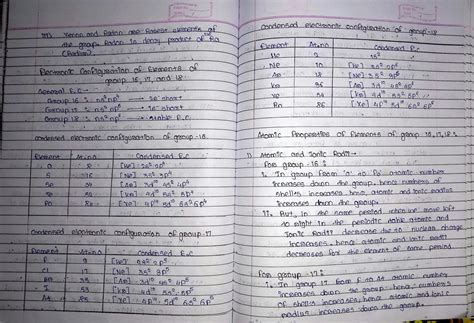 Xenon and Radon are rarest elements of
the group. Radon is decay product of Ra
(Radium).
Electronic Configuration of Elements of
group 16, 17, and 18:
General E.C.
Group 16 : ns² np⁴
Group 17 : ns² np⁵
Group 18 : ns² np⁶
Condensed electronic configuration of group-16.
Element At.no. Condensed E.C
O 8 [He] 2s² 2p⁴
S 16 [Ne] 3s² 3p⁴
34 [Ar] 3d¹⁰ 4s² 4p⁴
52 [Kr] 4d¹⁰ 5s² 5p⁴
84 [Xe] 4f¹⁴ 5d¹⁰ 6s² 6p⁴
Condensed electronic configuration of group-17.
Element At.no Condensed E.C
F 9 [He] 2s² 2p⁵
Cl 17 [Ne] 3s² 3p⁵
Br 35 [Ar] 3d¹⁰ 4s² 4p⁵
I 53 [Kr] 4d¹⁰ 5s² 5p⁵
At 85 [Xe] 4f¹⁴ 5d¹⁰ 6s² 6p⁵
Condensed electronic configuration of group-18
Element At.no Condensed E.C
He 2 1s²
Ne 10 [He] 2s² 2p⁶
Ar 18 [Ne] 3s² 3p⁶
Kr 36 [Ar] 3d¹⁰ 4s² 4p⁶
Xe 54 [Kr] 4d¹⁰ 5s² 5p⁶
Rn 86 [Xe] 4f¹⁴ 5d¹⁰ 6s² 6p⁶
Atomic Properties of Elements of group 16,17,18 :
1) Atomic and Ionic Radii
For group - 16 :
i. In group from 'O' to Po atomic number
increases down the group, hence numbers of
shells increases, hence atomic and ionic radius
increases down the group.
ii. But, in the same period when we move left
to right in the periodic table atomic and
Ionic Radii decrease due to nuclear charge
increases, hence atomic and ionic radii
decreases for the element of same period.
For group - 17 :
i. In group 17 from F to At atomic number
increases down the group hence numbers
of shells increases, hence atomic and ionic
radius increases down the group